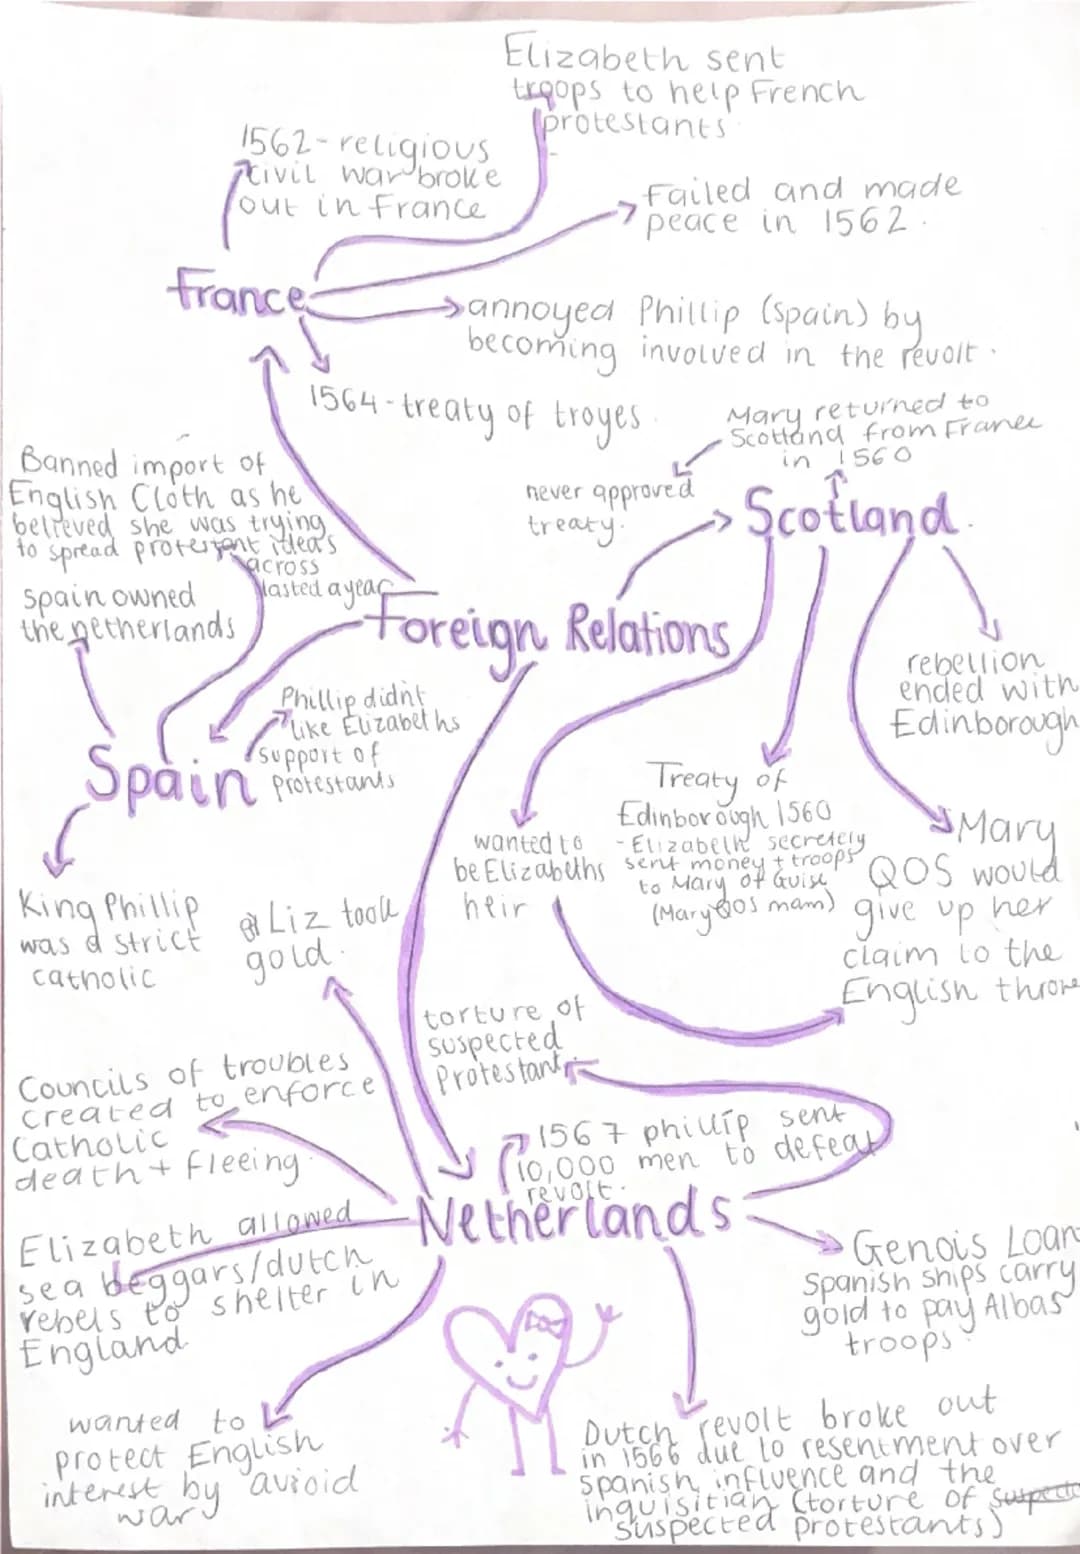 Elizabeth sent
troops to help French
protestants
1562 - religious
civil war broke
out in france
Failed and made
peace in 1562.
France
annoyed Phillip (Spain) by
becoming involved in the revolt.
1564 - treaty of troyes
Mary returned to
Scotland from France
in 1560
never approved
treaty.
Scotland.
Banned import of
English Cloth as he
believed she was trying
to spread protestant ideas
across
lasted a year
spain owned
the netherlands
Foreign Relations
rebellion
ended with
Edinborough
Phillip didn't
like Elizabeths
support of
protestants
Spain
Treaty of
Edinborough 1560
- Elizabeth secretely
sent money + troops
to Mary of Guise
(Mary QOS mam)
wanted to
be Elizabeths
heir
Mary
QOS would
give up her
claim to the
English throne
King Phillip
was a strict
catholic
Liz took
gold.
torture of
suspected
Protestant
Councils of troubles
created to enforce
Catholic
death + fleeing
1567 phillip sent
10,000 men to defeat
revolt.
Netherlands
Elizabeth allowed
sea beggars/dutch
rebels to shelter in
England
Genois Loan
Spanish ships carry
gold to pay Albas
troops.
wanted to
protect English
interest by avioid
war
Dutch revolt broke out
in 1566 due to resentment over
spanish influence and the
inquisitian (torture of
suspected protestants)